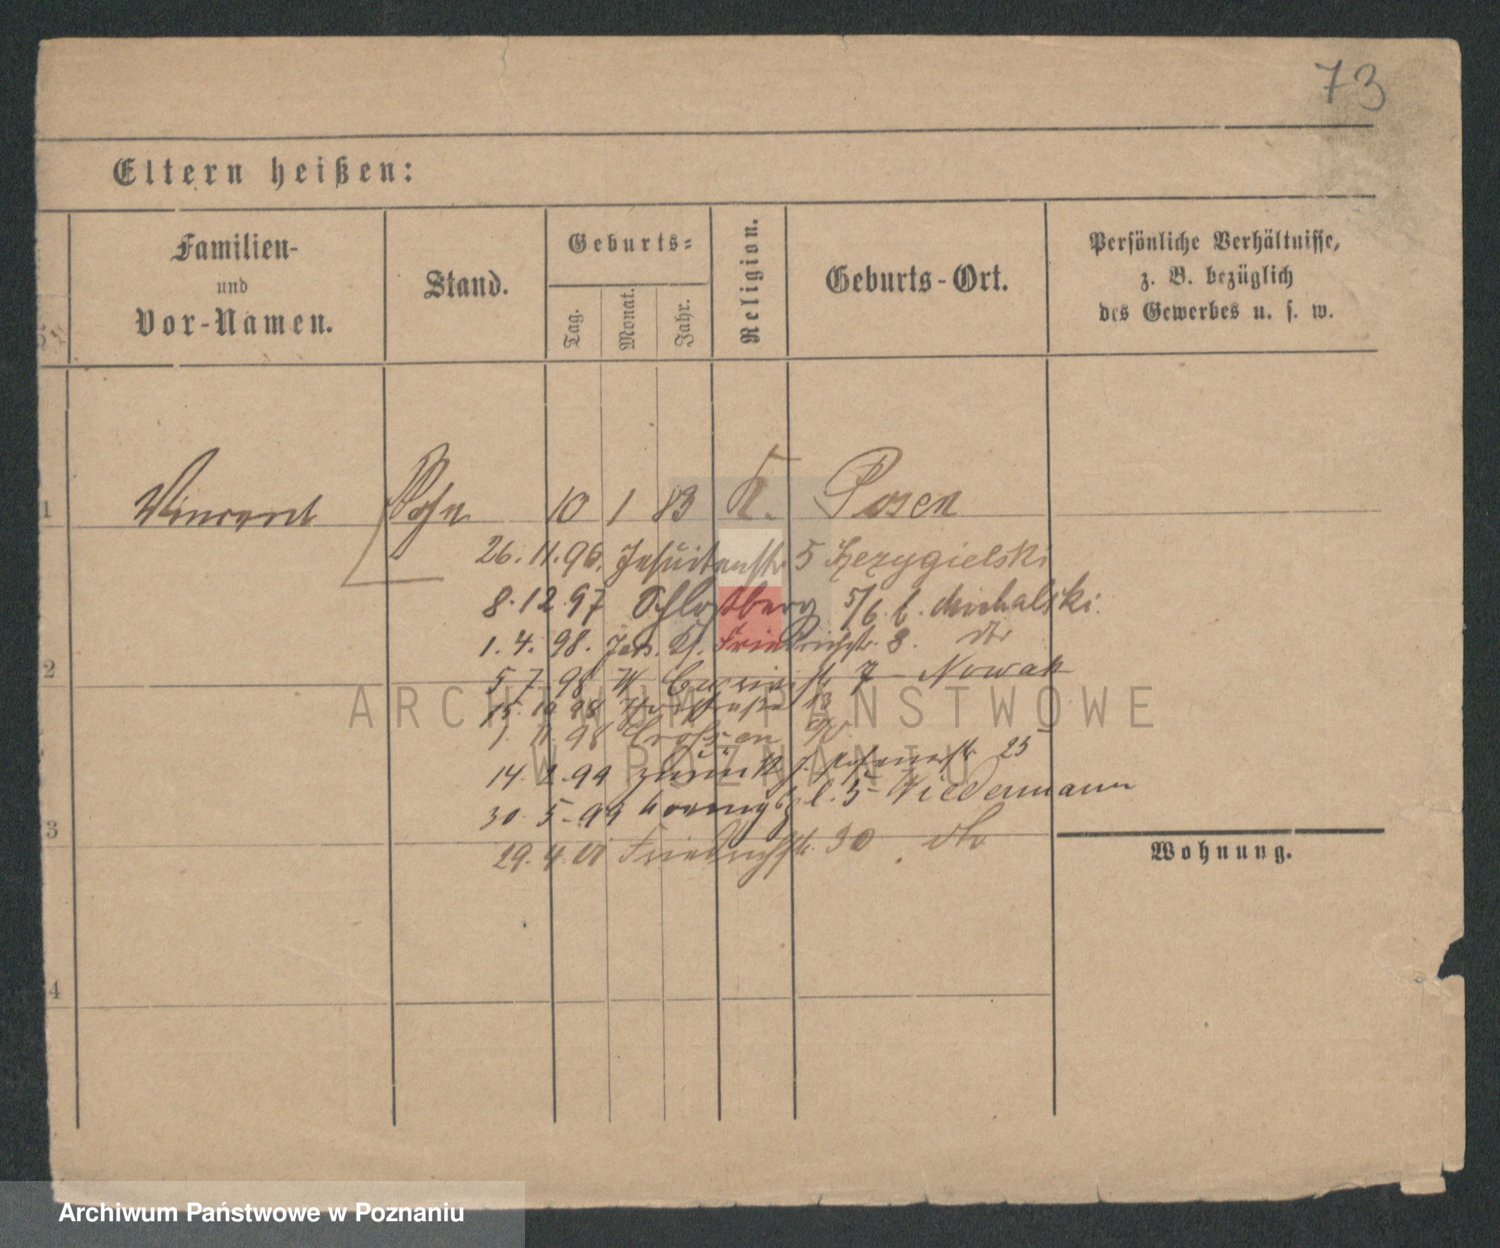 73
Eltern heißen:
Familien-
und
Vor-Namen.
Stand.
Geburts-
Tag.
Monat.
Jahr.
Religion.
Geburts-Ort.
Persönliche Verhältnisse,
z. B. bezüglich
des Gewerbes u. s. w.
1 Vincent Sohn 10 1 83 K. Posen
26. 11. 96. Jesuitenstr 5
8. 12 97 Schloßberg 5/6 b. Michalski.
1. 4. 98. Friedrichstr. 8. dto
2
5 7 98 7 Nowak
15. 10 98 13
1. 11. 98 Crossen
14. 2. 99 zurück 25
30. 5. 99 5 Wiedermann
3
29. 4. 01 Friedrichstr. 30. dto
Wohnung.
4
ARCHIWUM PAŃSTWOWE
W POZNANIU
Archiwum Państwowe w Poznaniu